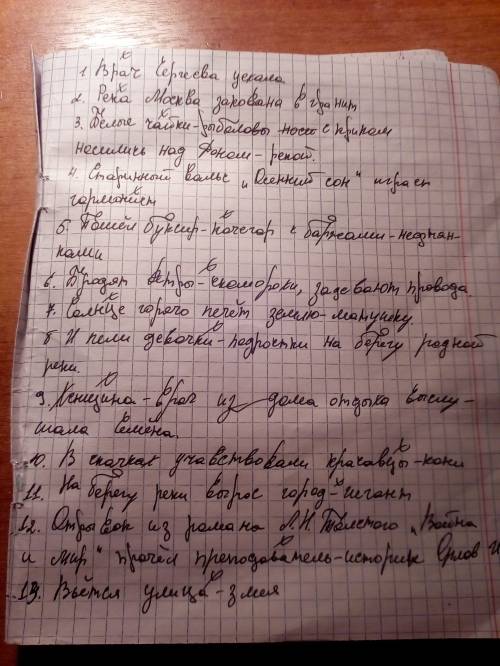 1. Врач Сергеева уехала
2. Река Москва закована в гранит
3. Белые чайки-рыболовы с криком
носились над Доном-рекой.
4. Старинный вальс „Осенний сон" играет
гармонист
5. Пошёл буксир-кочегар с баржами-неоднан-
ками
6. Бродят ветры-скоморохи, задевают провода.
7. Солнце горячо печёт землю-матушку.
8 И пели девочки-подростки на берегу родной
реки.
9. Женщина-врач из дома отдыха выслу-
шала Семёна.
10. В скачках учавствовали красавцы-кони
11. На берегу реки вырос город-гигант
12. Отрывок из романа Л.Н. Толстого „Война
и мир" прочёл преподаватель-историк Орлов
13. Вьётся улица-змея